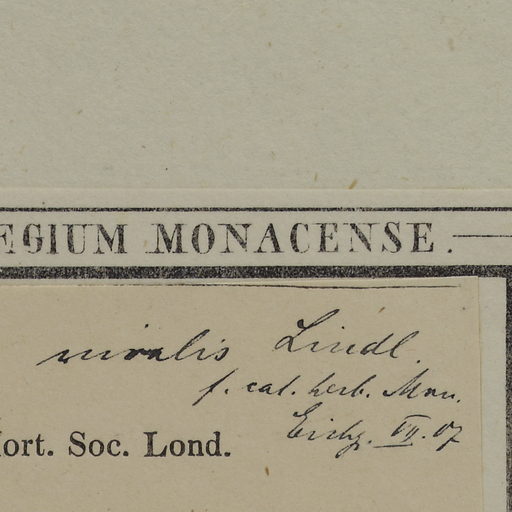 EGIUM MONACENSE.
nivalis Lindl.
f. cat. herb. Mon.
ort. Soc. Lond.
VII. 07